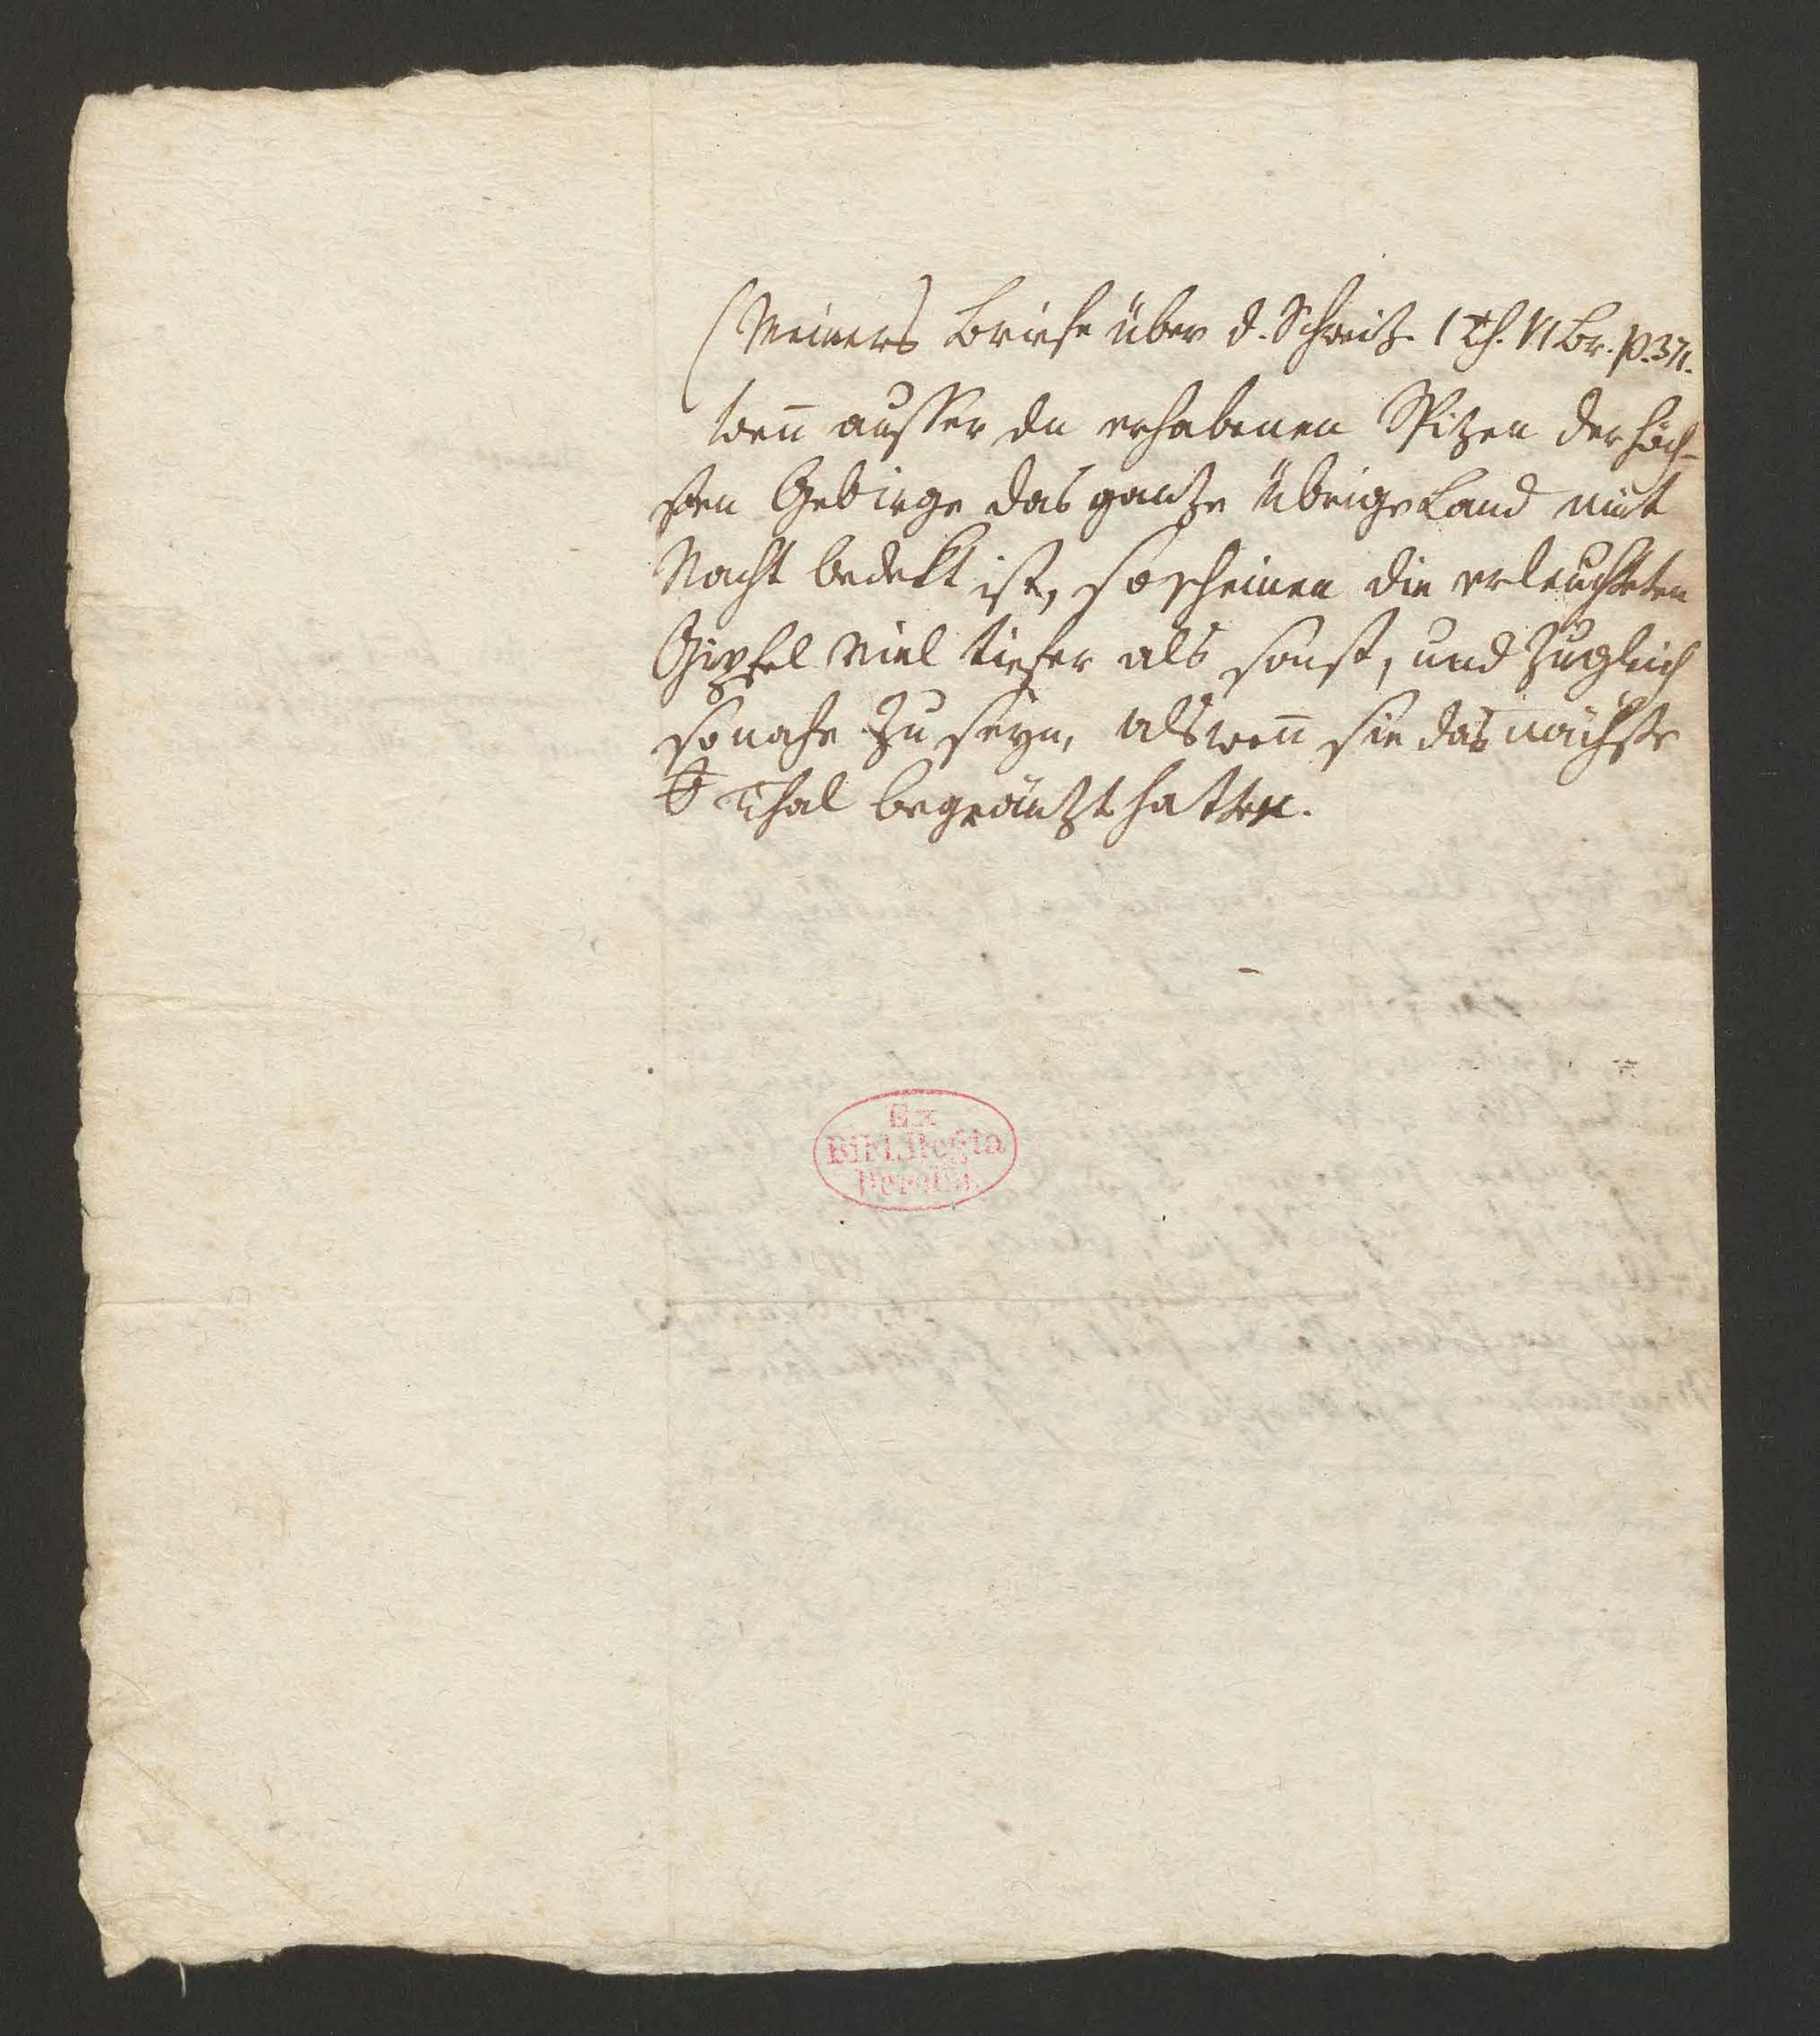 (Meiners Briefe über d. Schweitz. 1 Th. VI Br. p. 371.
wen̄ ausser den erhabenen Spitzen der höch-
sten Gebirge das gantze übrige Land mit
Nacht bedekt ist, so scheinen die erleuchteten
Gipfel viel tiefer als sonst, und zugleich
so nahe zu seyn, als wen̄ sie das nächste
Thal begräntzt hatten.
Ex
Bibl. Regia
Berolin.